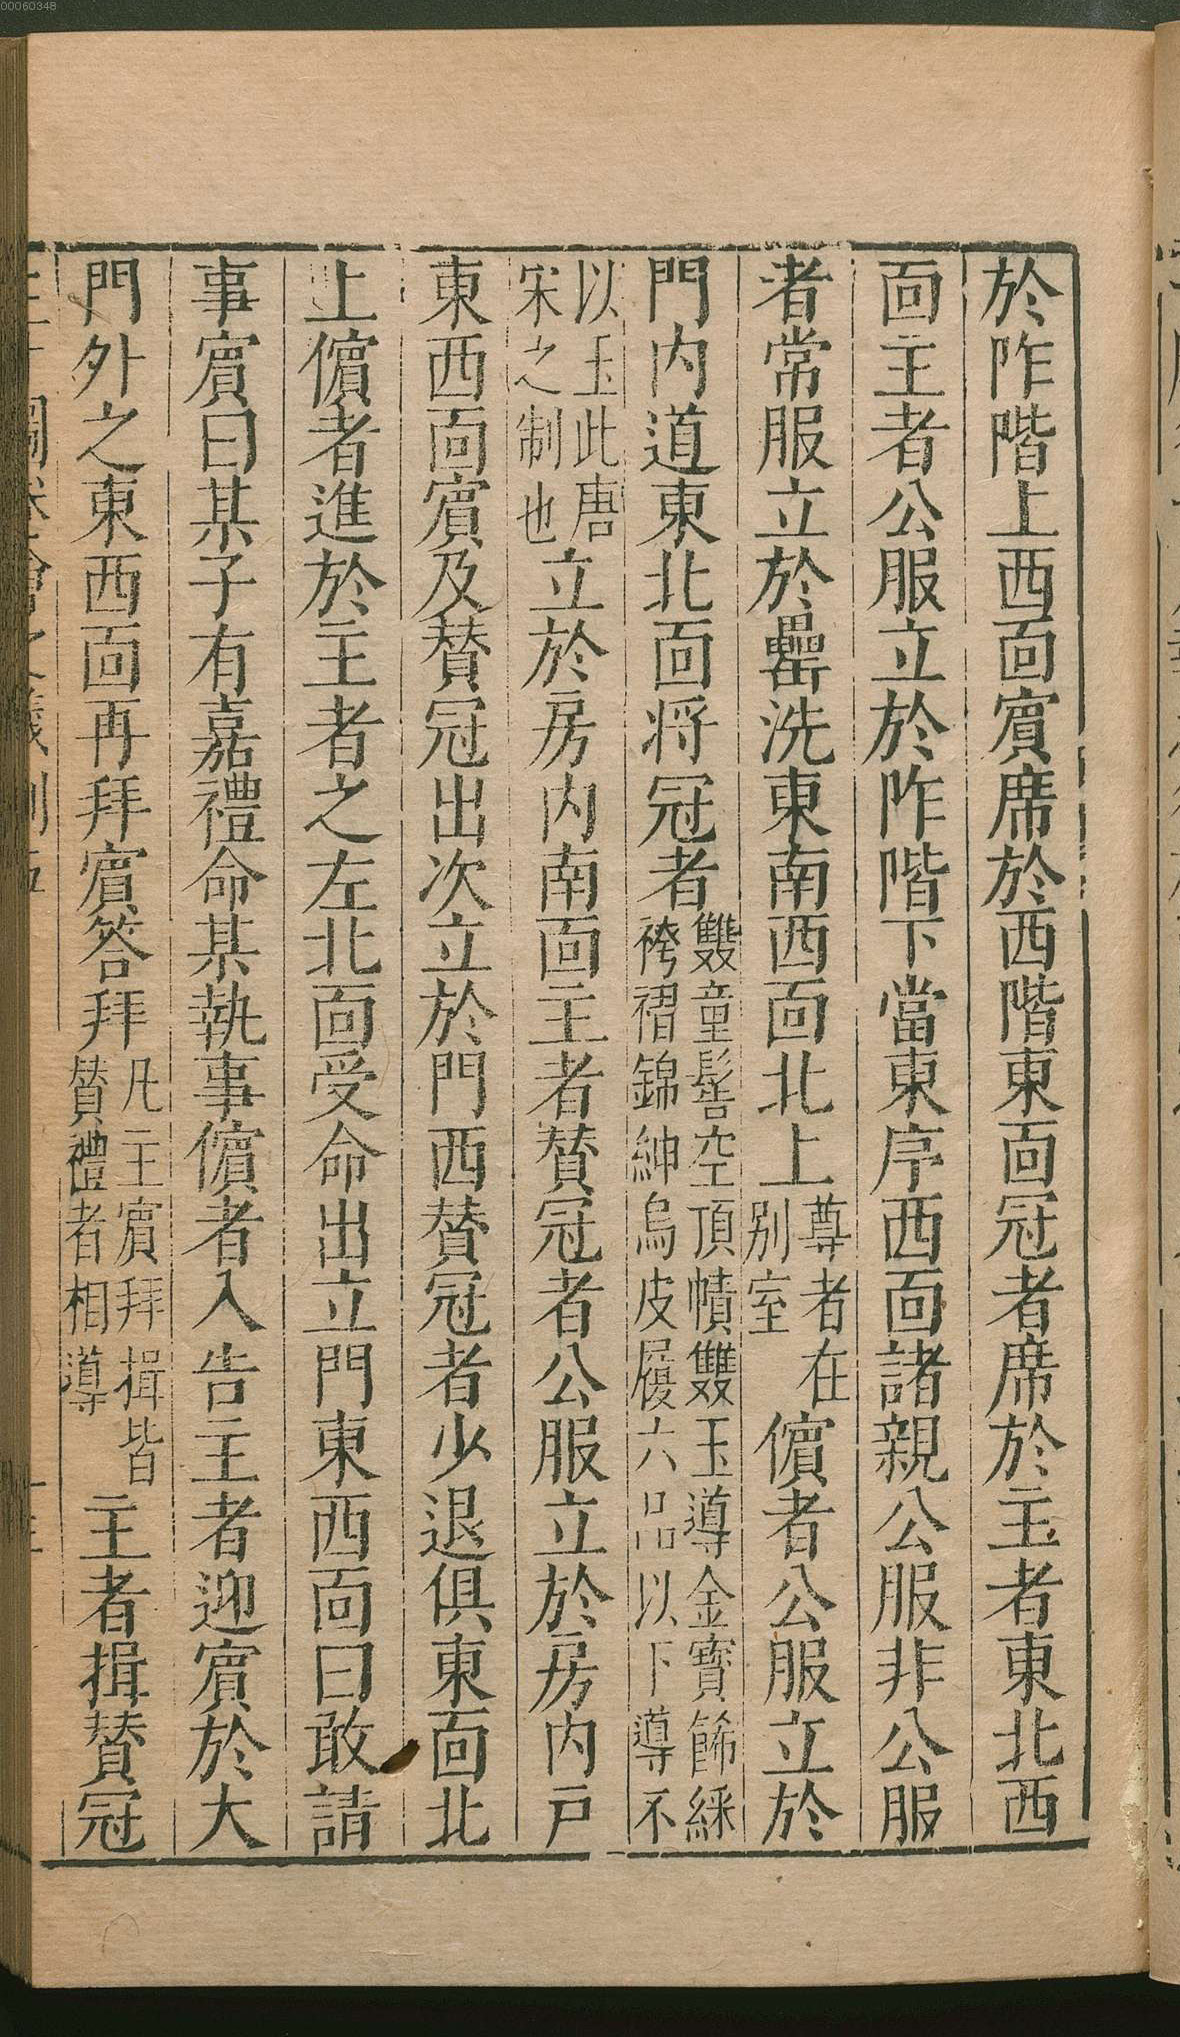 00060348
於阼階上西面賓席於西階東面冠者席於主者東北西
面主者公服立於阼階下當東序西面諸親公服非公服
者常服立於罍洗東南西面北上尊者在別室儐者公服立於
門内道東北面将冠者雙童髻空頂幘雙玉導金寶餙綵袴褶錦紳烏皮履六品以下導不
以玉此唐宋之制也立於房内南面主者賛冠者公服立於房内戸
東西面賓及賛冠出次立於門西賛冠者少退俱東面北
上儐者進於主者之左北面受命出立門東西面曰敢請
事賓曰某子有嘉禮命某執事儐者入告主者迎賓於大
門外之東西面再拜賓答拜凡主賓拜揖皆賛禮者相導主者揖賛冠